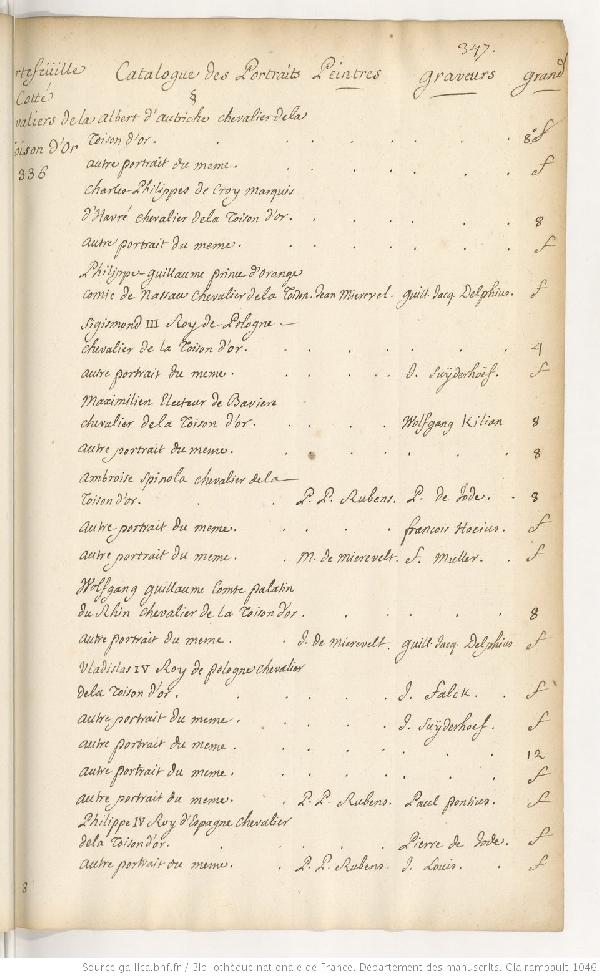 347.
rtefeüille Catalogue des Portraits Peintres graveurs grand
Cotté 8
valiers de la Albert d'autriche chevalier de la
oison d'Or Toison d'or. 8° f
336 autre portrait du meme. f
Charles-Philippes de Croy marquis
d'Havré chevalier de la Toison d'or. 8
autre portrait du meme. f
Philippe-guillaume prince d'orange
comte de Nassau chevalier de la Toison. Jean Mierevel. guill Jacq Delphius. f
Sigismond III Roy de Pologne —
chevalier de la Toison d'or. 4
autre portrait du meme. J. Suÿderhoef. f
Maximilien Electeur de Baviere
chevalier de la Toison d'or. Wolfgang Kilian 8
autre portrait du meme. 8
Ambroise Spinola chevalier de la —
Toison d'or. P. P. Rubens. P. de Jode. 8
autre portrait du meme. francois Hoeius. f
autre portrait du meme. M. de Mierevelt. f. Muller. f
Wolfgang guillaume Comte palatin
du Rhin chevalier de la Toison d'or. 8
autre portrait du meme. J. de Mierevelt. guill Jacq. Delphius f
Vladislas IV Roy de pologne chevalier
de la Toison d'or. J. Falck. f
autre portrait du meme. J. Suÿderhoef. f
autre portrait du meme. 12
autre portrait du meme. f
autre portrait du meme. P. P. Rubens. Paul pontius. f
Philippe IV Roy d'Espagne chevalier
de la Toison d'or. Pierre de Jode. f
autre portrait du meme. P. P. Rubens. J. Louis. f
8
Source gallica.bnf.fr / Bibliothèque nationale de France. Département des manuscrits. Clairambault 1046